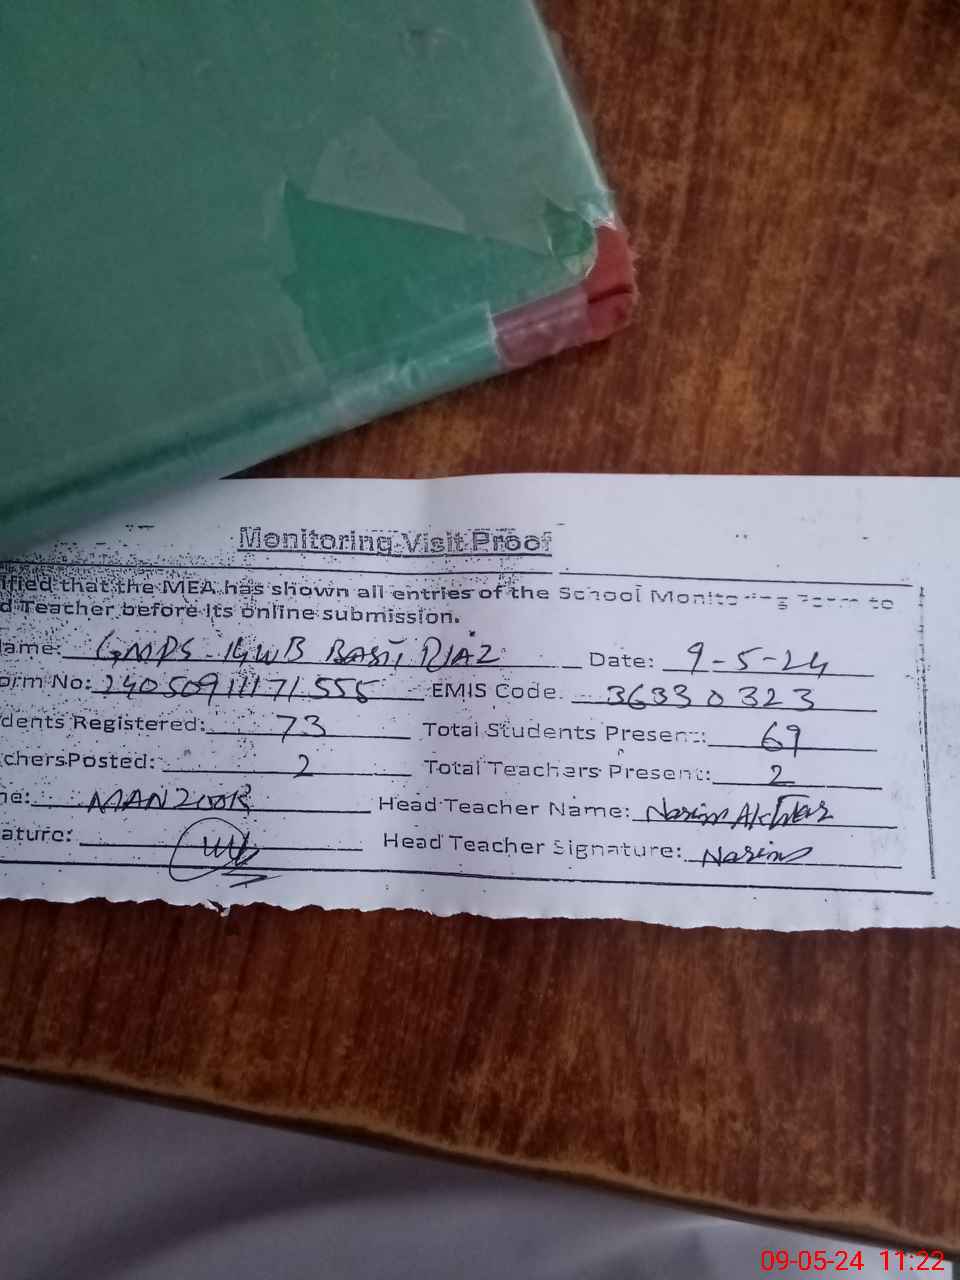 Monitoring Visit Proof
ified that the MEA has shown all entries of the School Monitoring Form to
d Teacher before its online submission.
ame: GMPS 14WB BASTI RIAZ Date: 9-5-24
orm No: 240509111171555 EMIS Code. 36330323
dents Registered: 73 Total Students Present: 69
chersPosted: 2 Total Teachers Present: 2
ne: MANZOOR Head Teacher Name: Nasim Akhtar
ature: Head Teacher Signature: Nasim
09-05-24 11:22